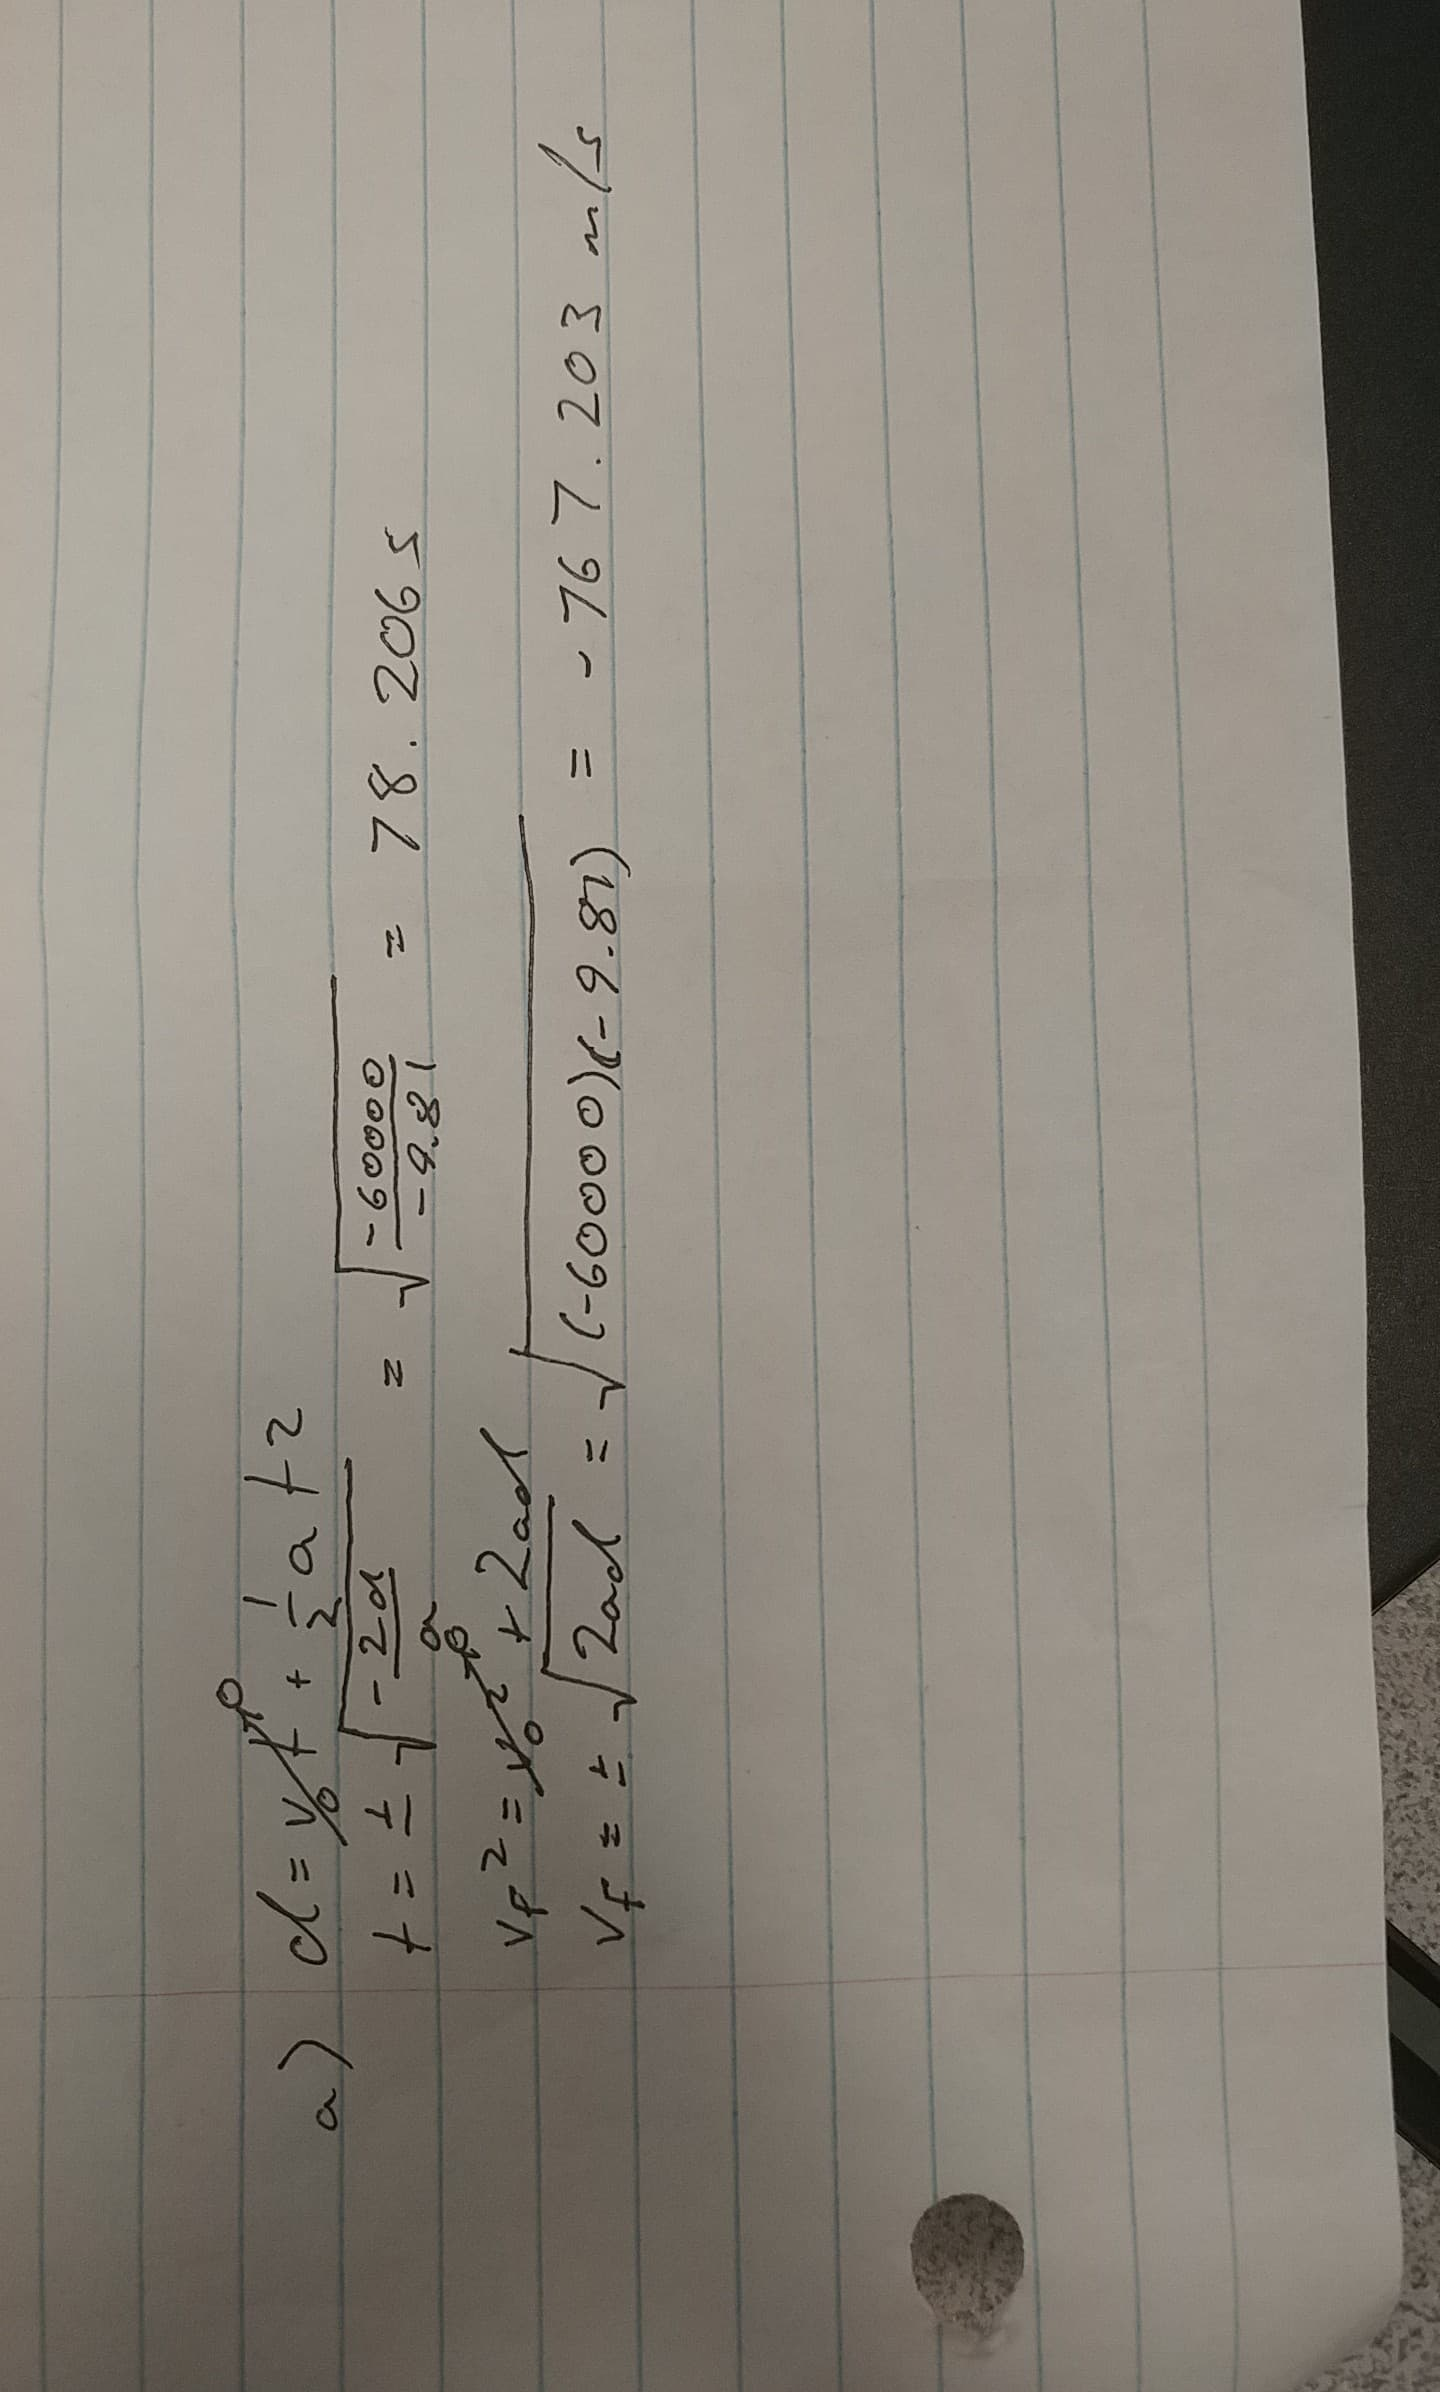 a) d = v₀t→0 + 1/2 at²
t = ± √(-2d/a) = √(-60000/-9.81) = 78.206 s
v_f² = v₀²→0 + 2ad
v_f = ± √(2ad) = √((-60000)(-9.81)) = -767.203 m/s